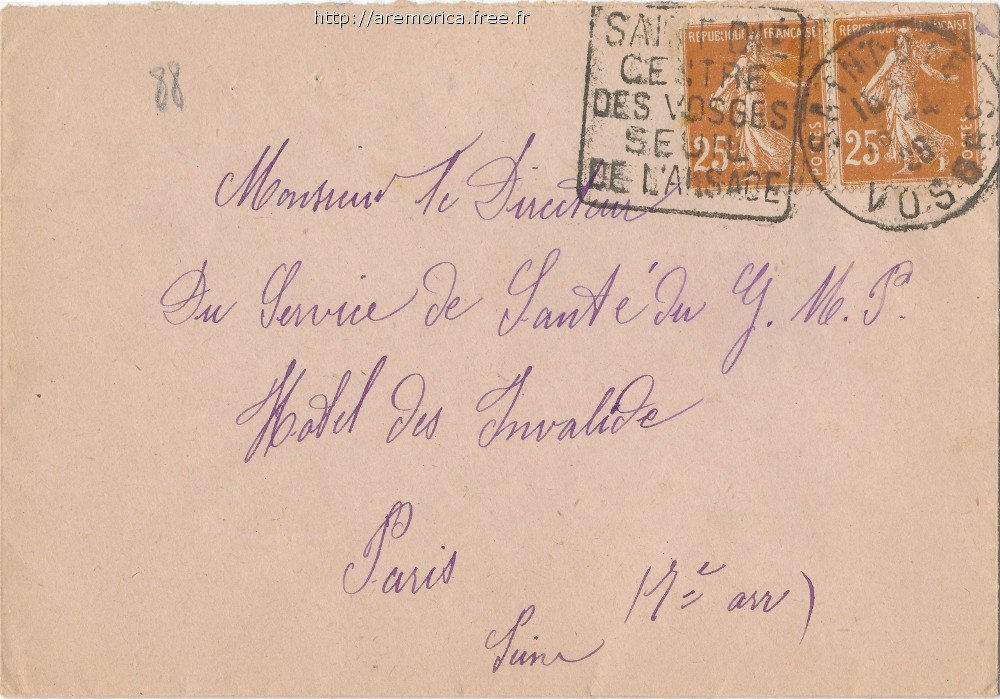 http://aremorica.free.fr
88
SAINT-DIÉ
CENTRE
DES VOSGES
SEUIL
DE L'ALSACE
REPUBLIQUE FRANÇAISE
25c
POSTES
REPUBLIQUE FRANÇAISE
25c
POSTES
SAINT-DIÉ
38
VOSGES
Monsieur le Directeur
Du Service de Santé du G. M. P.
Hôtel des Invalide
Paris
(7e arr)
Seine